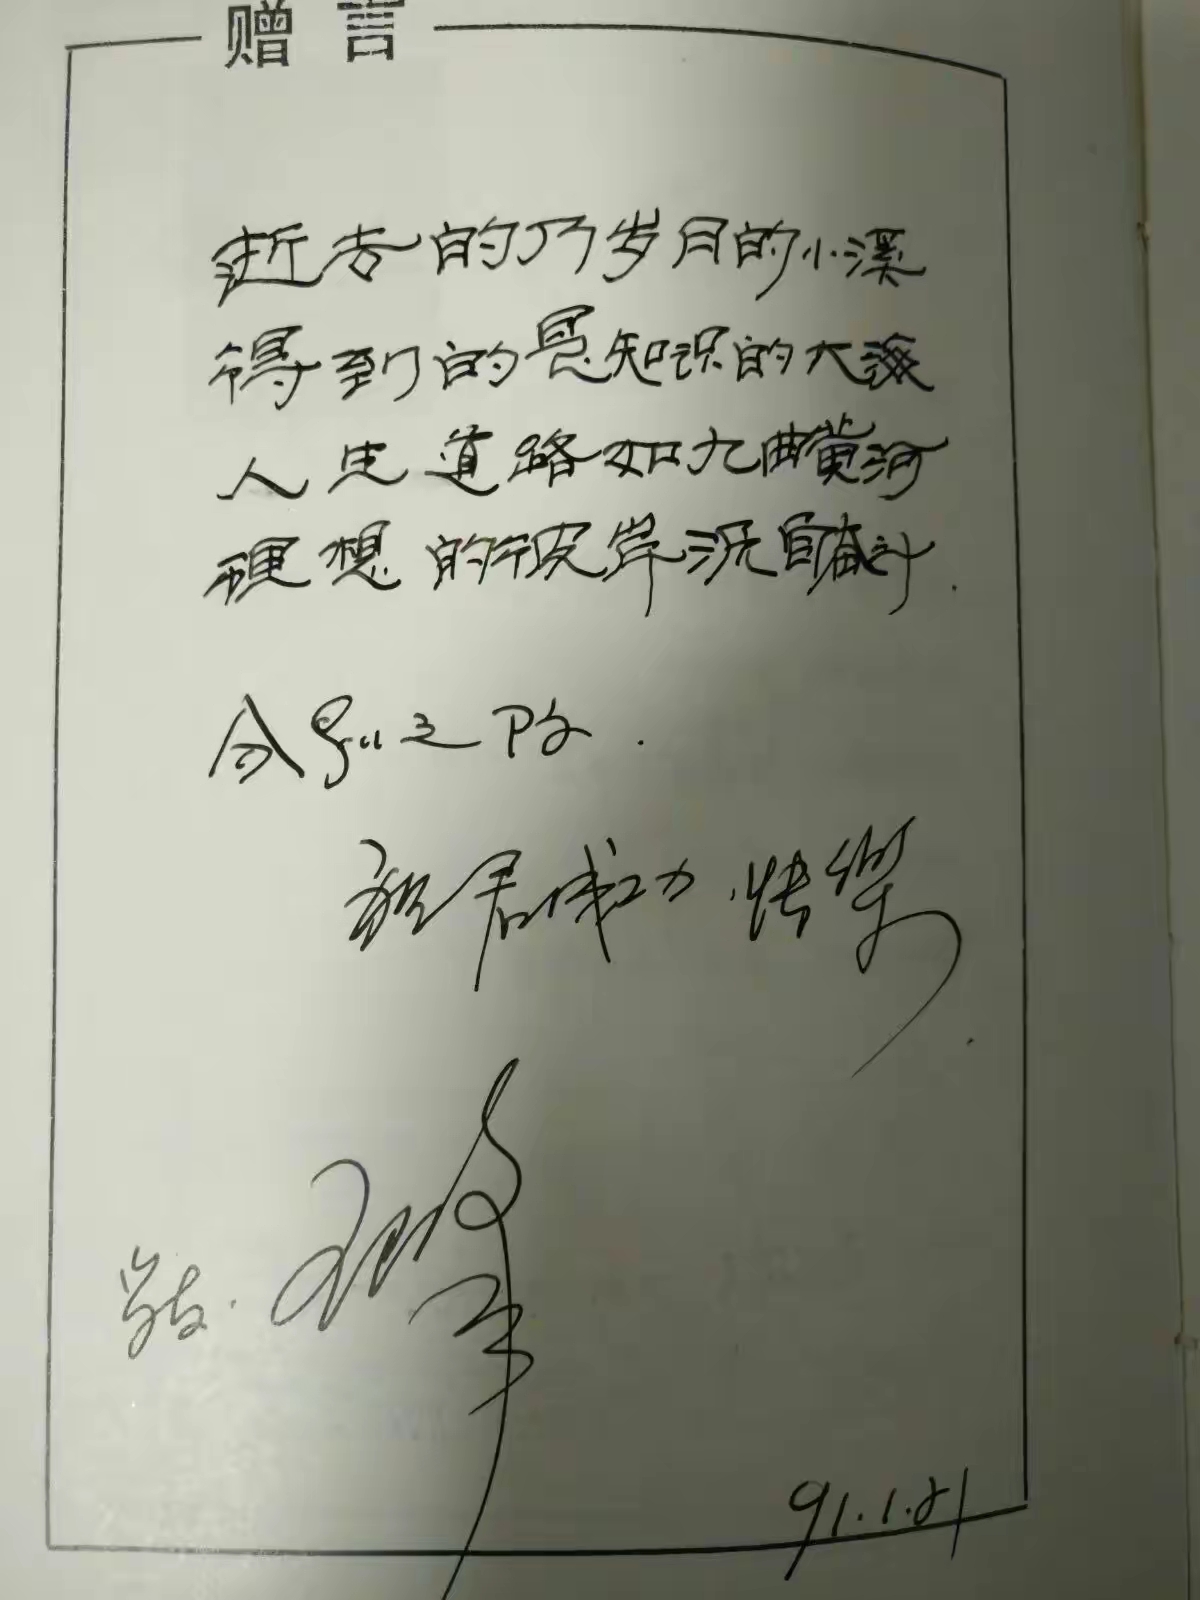 赠言
逝去的乃岁月的小溪
得到的是知识的大海
人生道路如九曲黄河
理想的彼岸沉自奋斗.
分别之际.
祝君成功.快乐
学友.
91.1.21